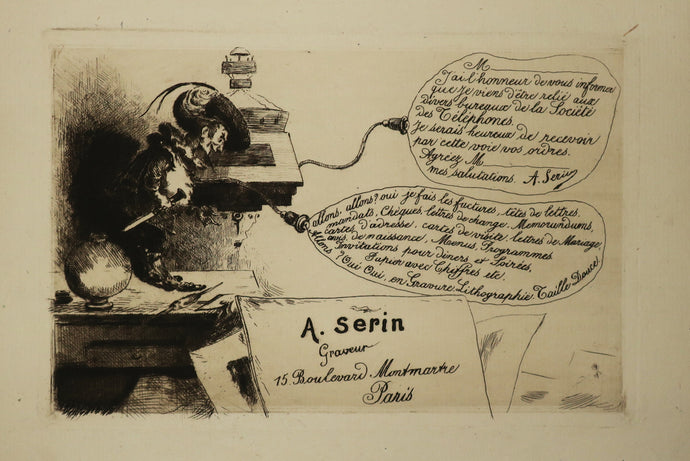 M
J'ai l'honneur de vous informer
que je viens d'être relié aux
divers bureaux de la Société
des Téléphones.
Je serais heureux de recevoir
par cette voie vos ordres.
Agréez M
mes salutations. A. Serin
allons, allons? oui je fais les factures, têtes de lettres,
mandats, Chèques, lettres de change, Memorundums,
cartes d'adresse, cartes de visite, lettres de Mariage,
avis de naissance, Menus, Programmes
Invitations pour diners et Soirées,
Papier avec Chiffres etc
Allons? Oui Oui, en Gravure, Lithographie, Taille Douce
A. Serin
Graveur
15. Boulevard. Montmartre.
Paris